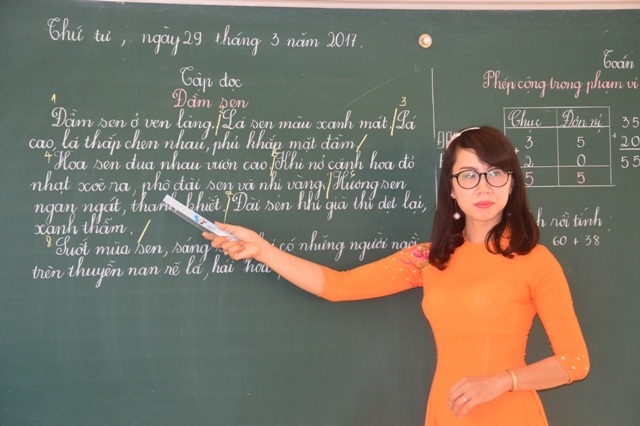 Thứ tư, ngày 29 tháng 3 năm 2017.
Tập đọc
Đầm sen
1 3
Đầm sen ở ven làng. Lá sen màu xanh mát. Lá
cao, lá thấp chen nhau, phủ khắp mặt đầm.
4 Hoa sen đua nhau vươn cao. Khi nở cánh hoa đỏ
nhạt xoè ra, phô đài sen và nhị vàng. Hương sen
ngan ngát, thanh khiết. Đài sen khi già thì dẹt lại,
xanh thẫm.
8 Suốt mùa sen, sáng có những người
trên thuyền nan rẽ lá, hái hoa
Toán
Phép cộng trong phạm vi
Chục Đơn vị
3 5
2 0
5 5
35
+
20
55
rồi tính:
60 + 38